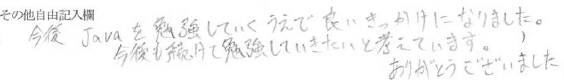 その他自由記入欄
今後 Javaを勉強していくうえで良いきっかけになりました。
今後も続けて勉強していきたいと考えています。
ありがとうございました